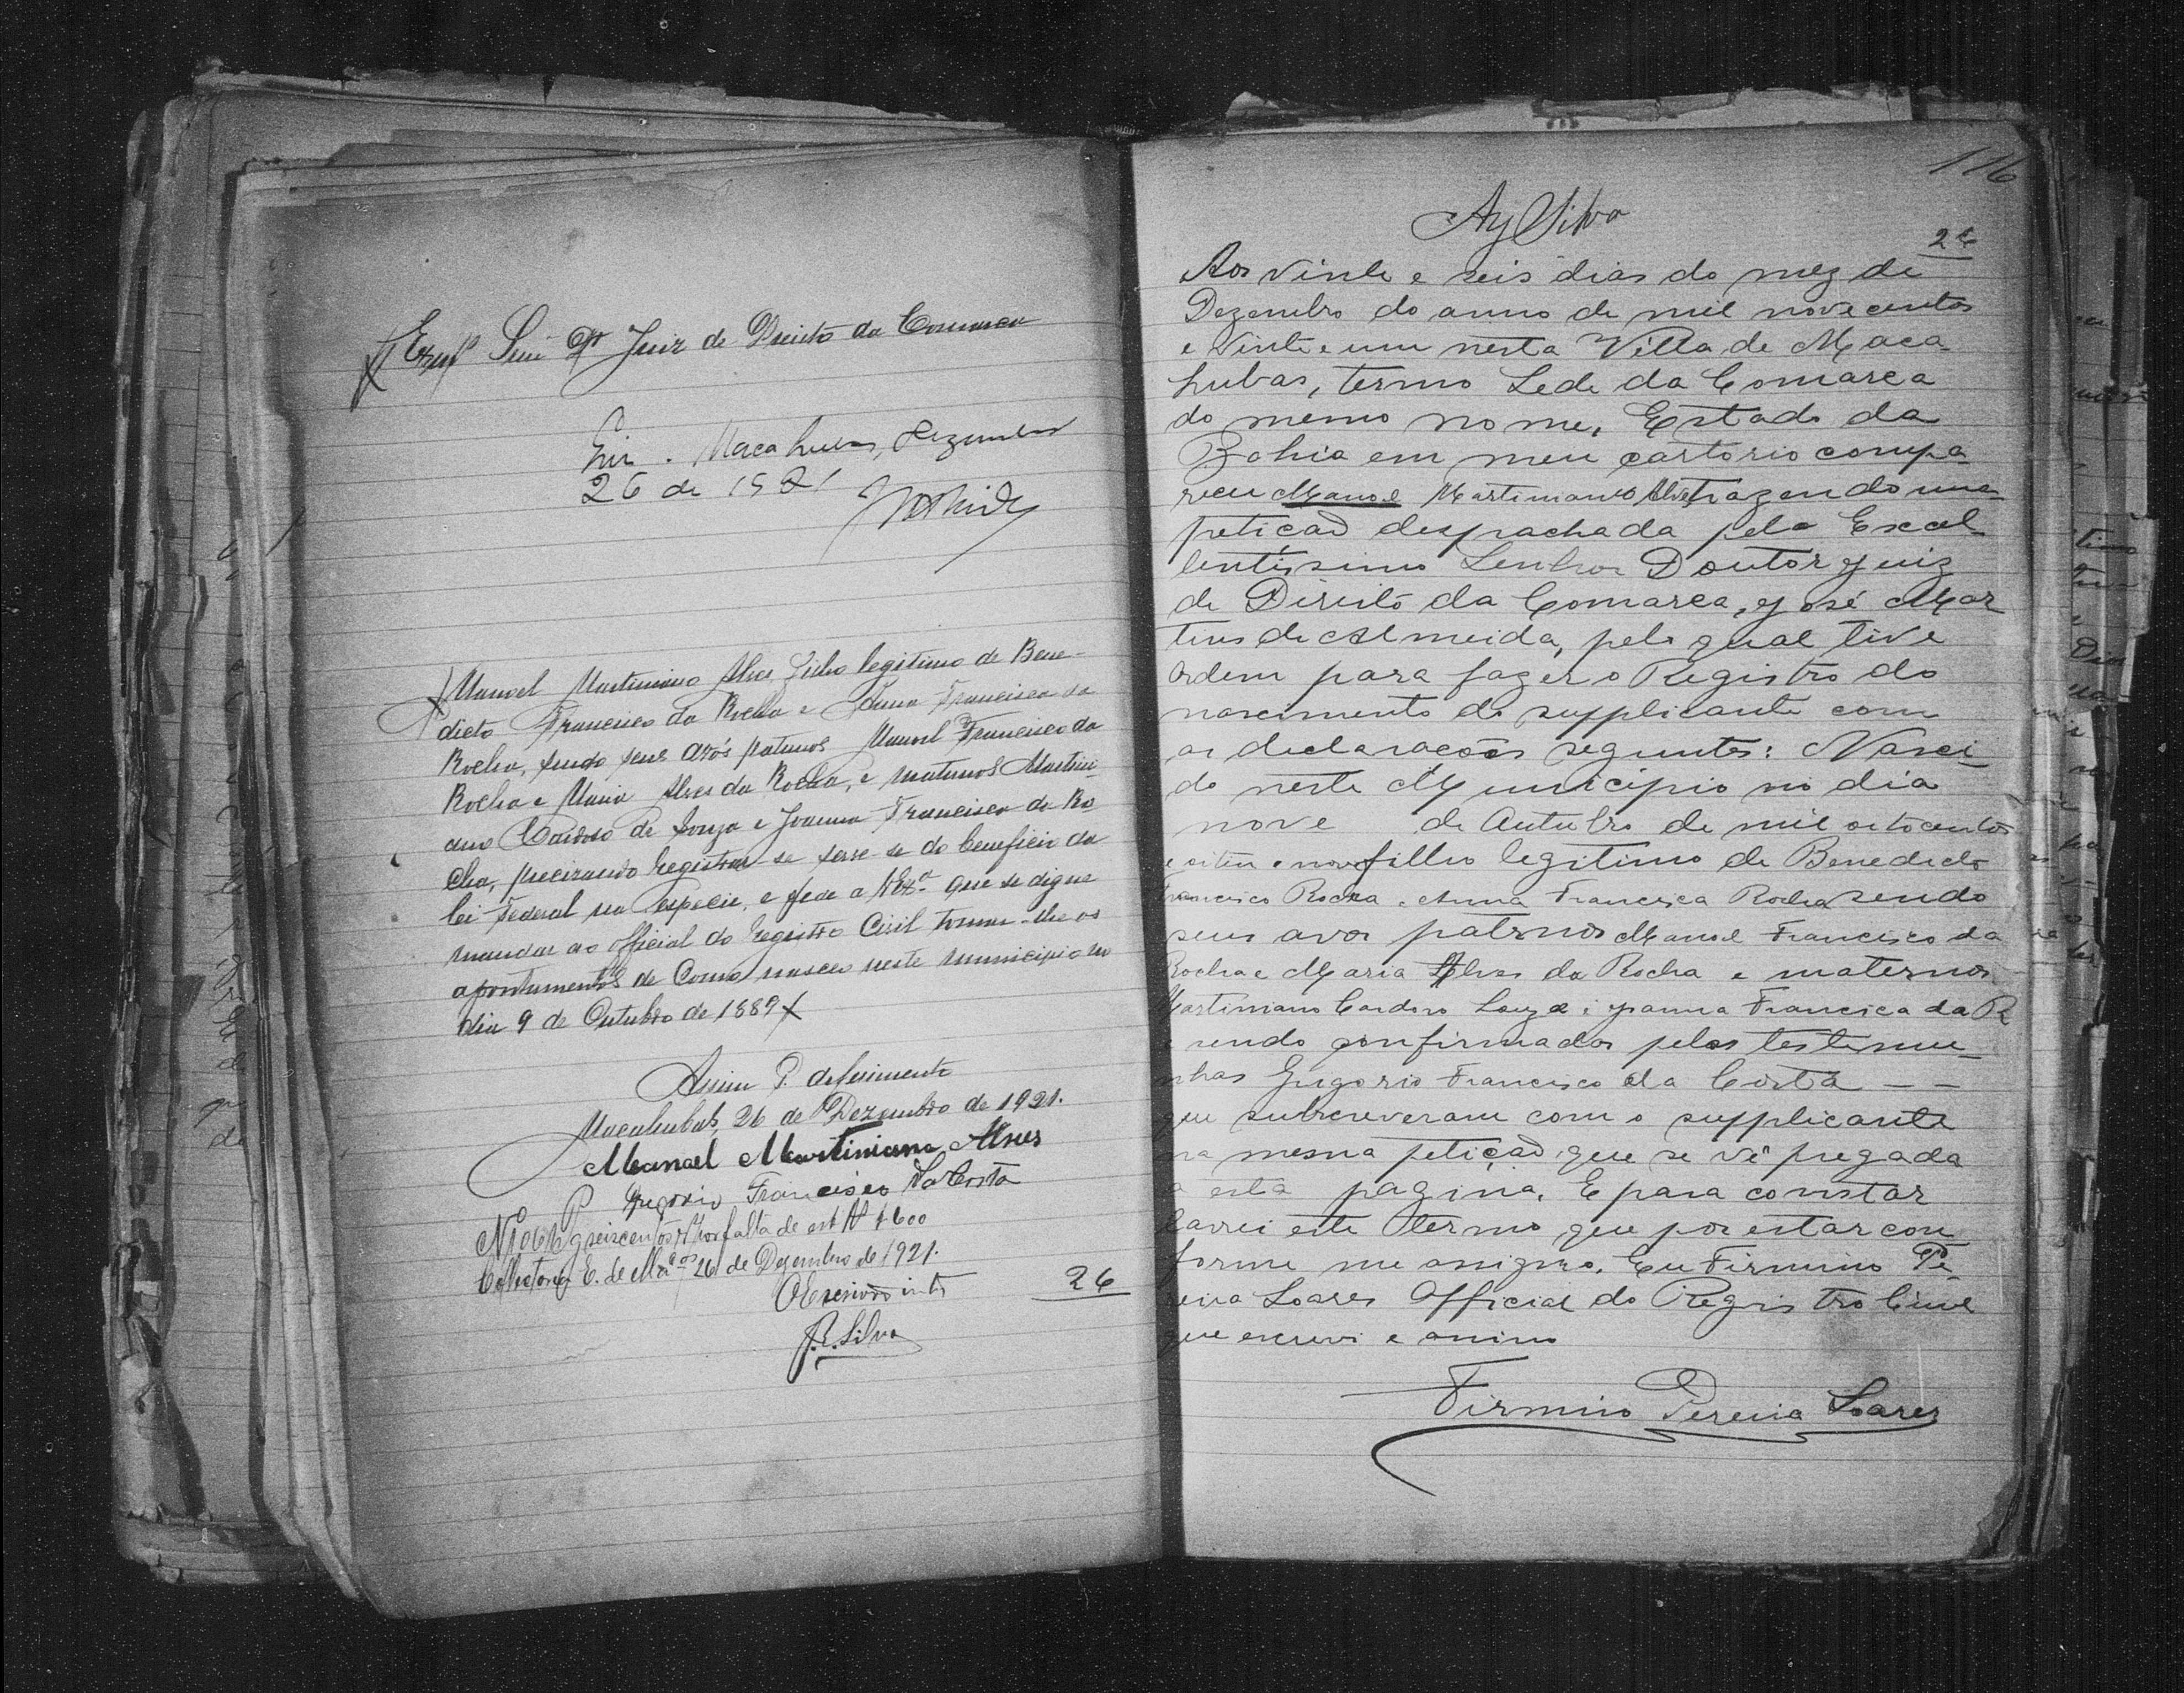 Exmº Snr Dr Juiz de Direito da Comarca
Sim. Macahubas, Dezembro
26 de 1921
Manoel Martiniano Alves, filho legitimo de Bene-
dicto Francisco da Rocha e Anna Francisca da
Rocha, sendo seus avós paternos Manoel Francisco da
Rocha e Maria Alves da Rocha, e maternos Martini-
ano Cardoso de Souza e Joanna Francisca da Ro
cha, precisando registrar-se, serve-se do beneficio da
lei Federal na especie, e pede a V. Exª que se digne
mandar ao official do registro Civil tomar-lhe os
apontamentos de como nasceu neste municipio no
dia 9 de Outubro de 1889
Assim P. deferimento
Macahubas, 26 de Dezembro de 1921.
Manoel Martiniano Alves
Gregorio Francisco da Costa
seiscentos por falta de est $600
Collectoria E. de 26 de Dezembro de 1921.
O Escrivão intº
26
Silva
116
Silva
26
Aos vinte e seis dias do mez de
Dezembro do anno de mil novecentos
e vinte e um nesta Villa de Maca-
hubas, termo Sede da Comarca
do mesmo nome, Estado da
Bahia em meu cartorio compa-
receu Manoel Martiniano Alves trazendo uma
petição despachada pelo Excel-
lentissimo Senhor Doutor Juiz
de Direito da Comarca, José Mar
tins de Almeida, pelo qual tive
ordem para fazer o Registro do
nascimento do supplicante com
as declarações seguntes: Nasci-
do neste Municipio no dia
nove de Outubro de mil oitocentos
e oitenta e nove filho legitimo de Benedicto
Francisco Rocha e Anna Francisca Rocha sendo
seus avos paternos Manoel Francisco da
Rocha e Maria Alves da Rocha e maternos
Martiniano Cardoso Souza e Joanna Francisca da R
e sendo confirmados pelas testemu-
nhas Gregorio Francisco da Costa — —
que subscreveram com o supplicante
na mesma petição que se vê pregada
a esta pagina. E para constar
lavrei este termo que por estar con
forme me assigno. Eu Firmino Pe-
reira Soares Official do Registro Civil
que escrevi e assino
Firmino Pereira Soares